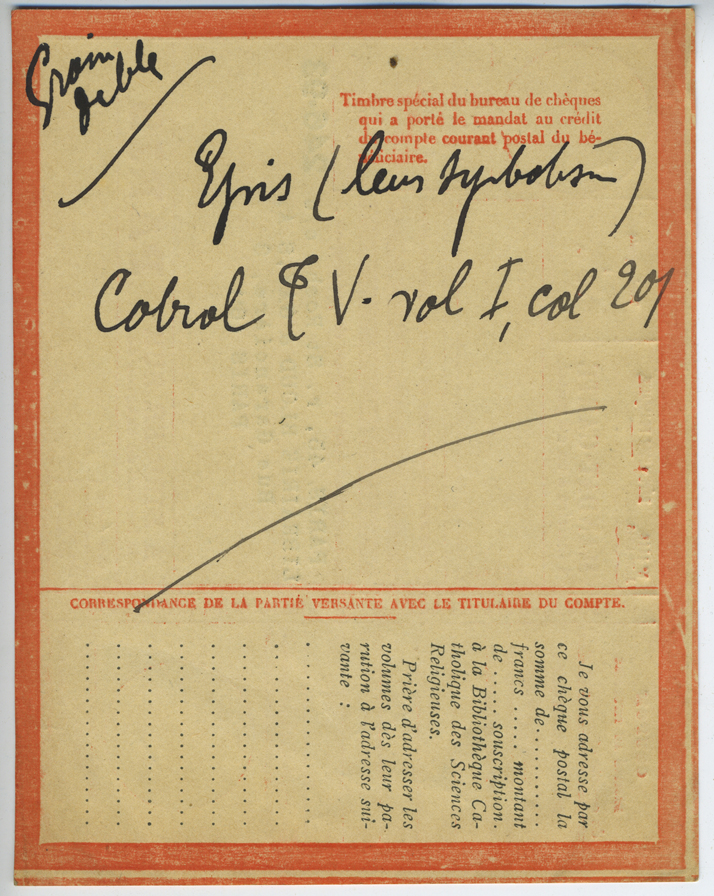 Grain
de blé
Timbre spécial du bureau de chèques
qui a porté le mandat au crédit
du compte courant postal du bé-
néficiaire.
Epis (leur symbolisme)
Cabrol T V. vol I, col 201
CORRESPONDANCE DE LA PARTIE VERSANTE AVEC LE TITULAIRE DU COMPTE.
Je vous adresse par
ce chèque postal la
somme de...........
francs ..... montant
de ..... souscription.
à la Bibliothèque Ca-
tholique des Sciences
Religieuses.
Prière d'adresser les
volumes dès leur pa-
rution à l'adresse sui-
vante :